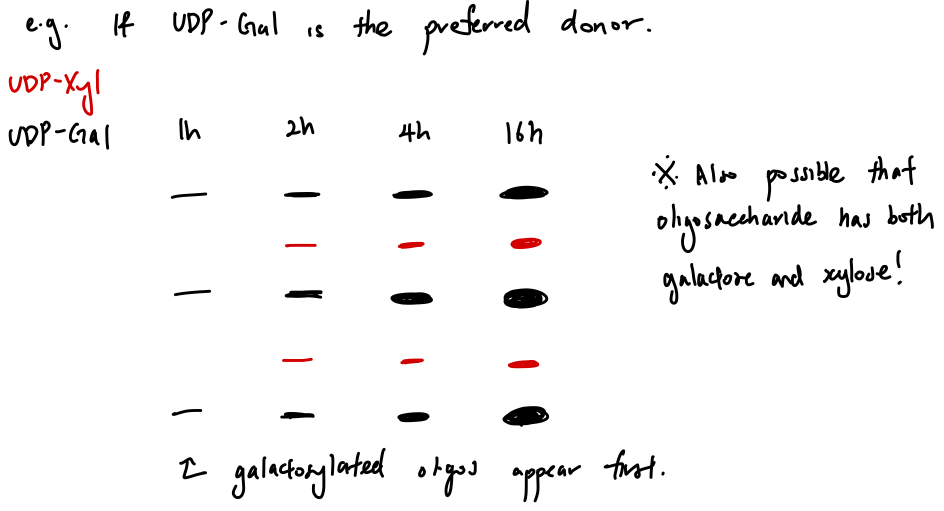 e.g. If UDP-Gal is the preferred donor.
UDP-Xyl
UDP-Gal 1h 2h 4h 16h
※ Also possible that
oligosaccharide has both
galactose and xylose!
↑ galactosylated oligos appear first.